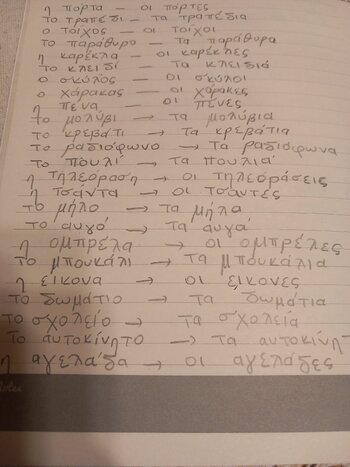 η πορτα — οι πόρτες
το τραπέδι — τα τραπέδια
ο τοίχος — οι τοίχοι
το παράθυρο — τα παράθυρα
η καρέκλα — οι καρέκλες
το κλειδί — τα κλειδιά
ο σκύλος — οι σκύλοι
ο χάρακας — οι χάρακες
η πένα — οι πένες
το μολύβι → τα μολύβια
το κρεβάτι → τα κρεβάτια
το ραδιόφωνο → τα ραδιόφωνα
το πουλί → τα πουλιά
η τηλεόραση → οι τηλεοράσεις
η τσάντα → οι τσάντες
το μήλο → τα μήλα
το αυγό → τα αυγά
η ομπρέλα → οι ομπρέλες
το μπουκάλι → τα μπουκάλια
η εικονα → οι εικονες
το δωμάτιο → τα δωμάτια
το σχολείο → τα σχολεία
το αυτοκίνητο → τα αυτοκίνητ
η αγελάδα → οι αγελάδες